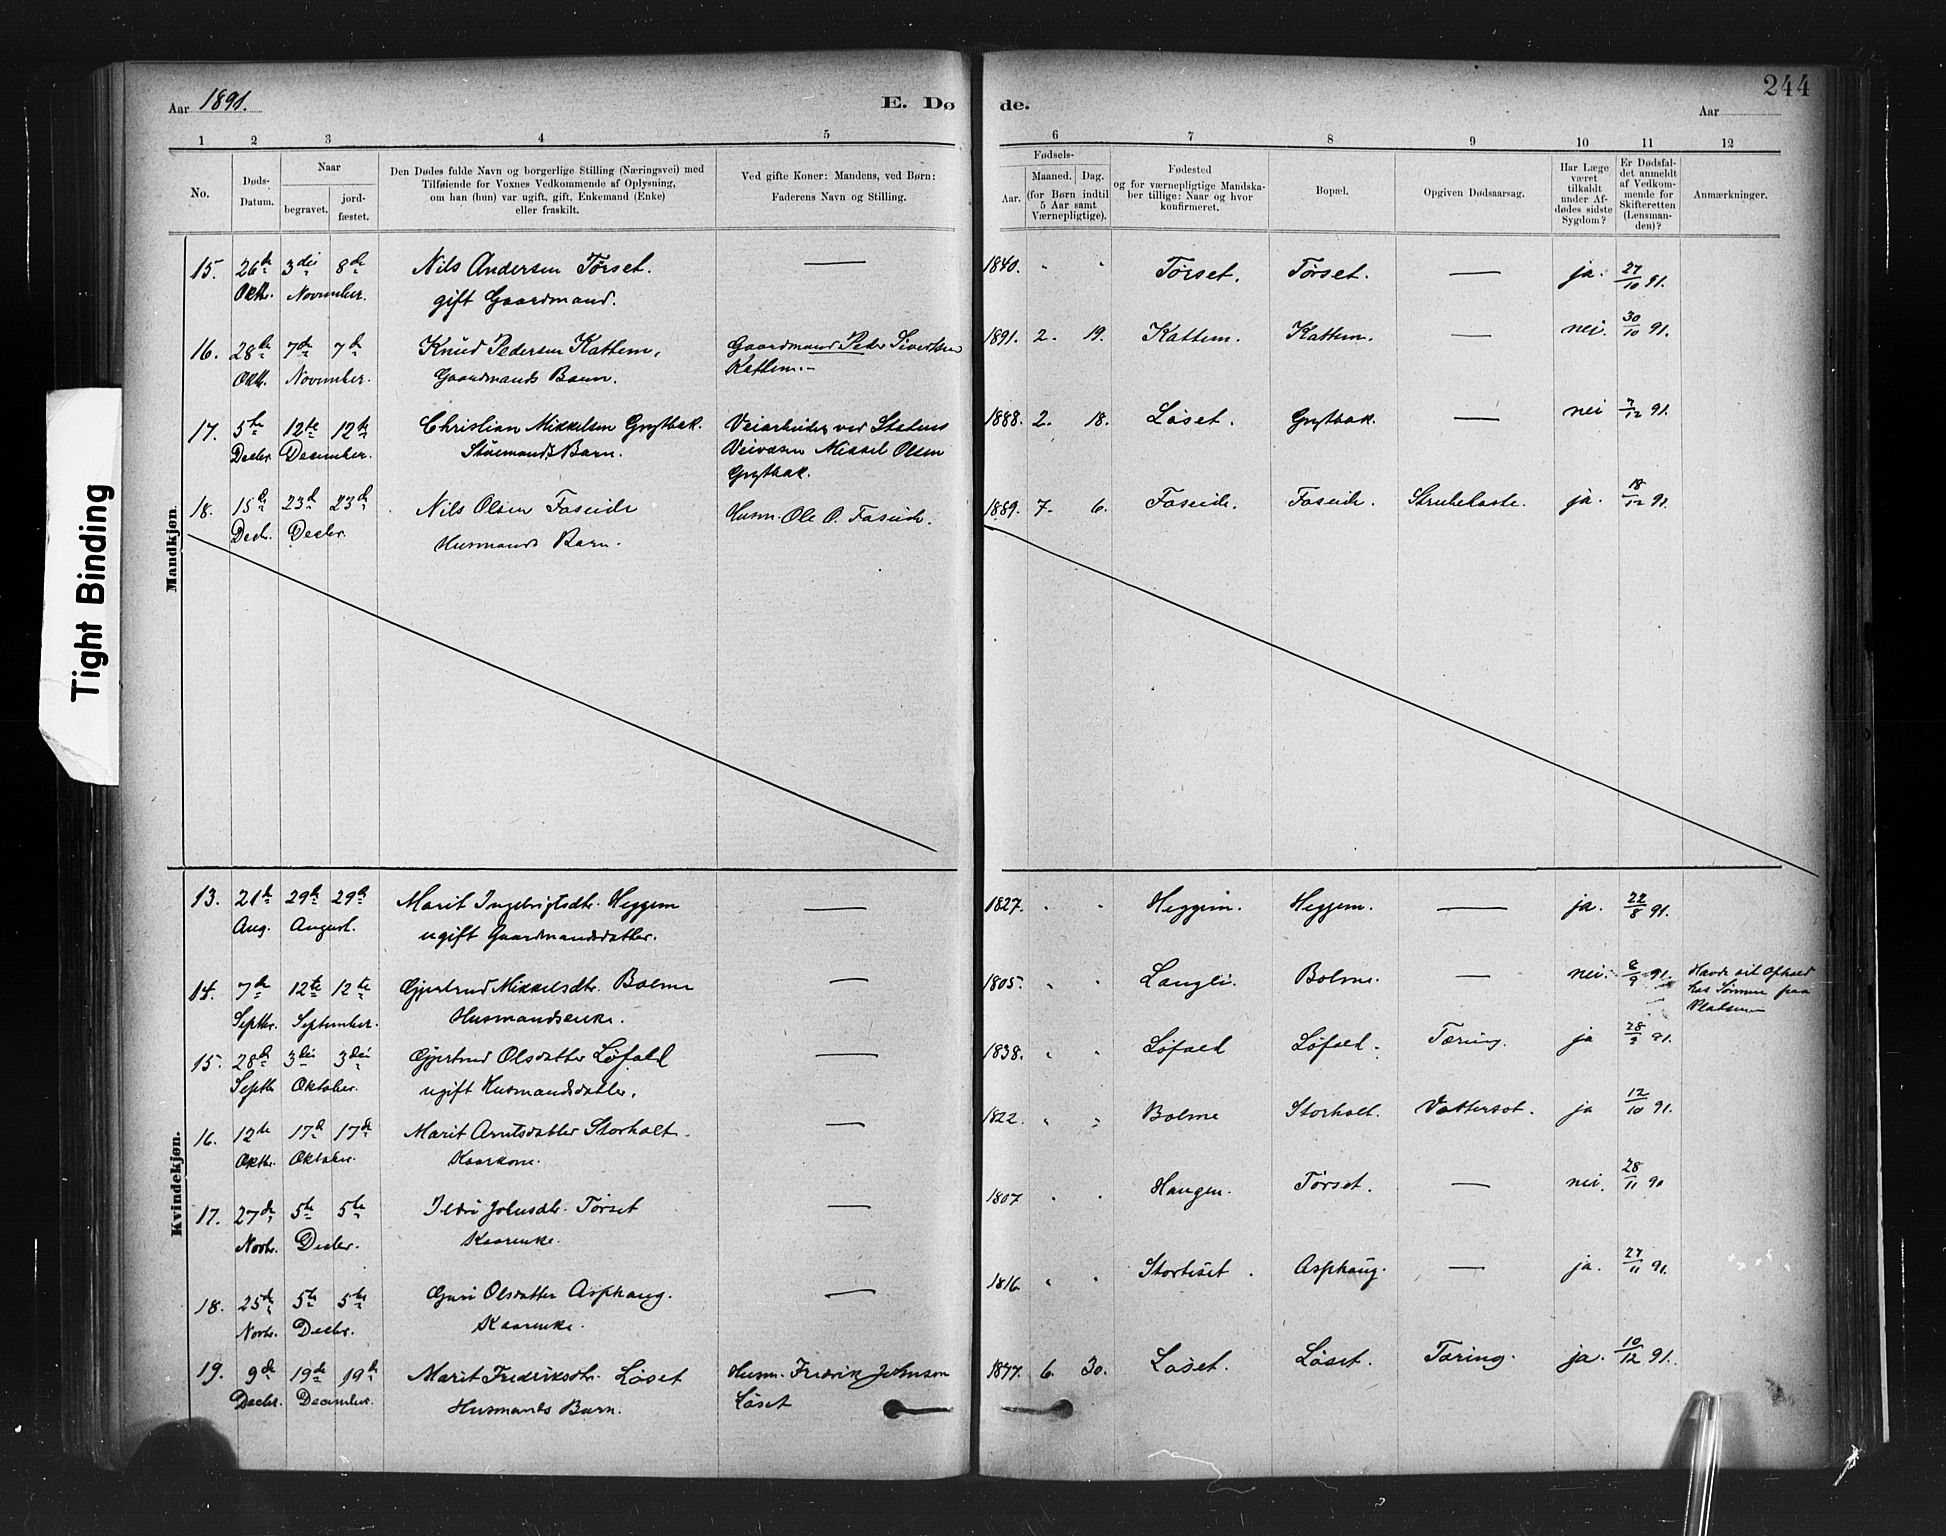 244
Aar 1891.
E. Dø de.
Aar
1 2 3 4 5 6 7 8 9 10 11 12
No.
Døds-
Datum.
Naar
begravet.
jord-
fæstet.
Den Dødes fulde Navn og borgerlige Stilling (Næringsvei) med
Tilføiende for Voxnes Vedkommende af Oplysning,
om han (hun) var ugift, gift, Enkemand (Enke)
eller fraskilt.
Ved gifte Koner: Mandens, ved Børn:
Faderens Navn og Stilling.
Fødsels-
Aar.
Maaned. Dag.
(for Børn indtil
5 Aar samt
Værnepligtige).
Fødested
og for værnepligtige Mandska-
ber tillige: Naar og hvor
konfirmeret.
Bopæl.
Opgiven Dødsaarsag.
Har Læge
været
tilkaldt
under Af-
dødes sidste
Sygdom?
Er Dødsfal-
det anmeldt
af Vedkom-
mende for
Skifteretten
(Lensman-
den)?
Anmærkninger.
Tight Binding
Mandkjøn.
15. 26de 3die 8de Nils Andersen Tørset. — 1840. " " Tørset. Tørset. — ja. 27/10 91.
Oktb. November. gift Gaardmand.
16. 28de 7de 7de Knud Pedersen Kattem, Gaardmand Peder Sivertsen 1891. 2. 19. Kattem. Kattem. — nei. 30/10 91.
Oktb. November. Gaardmands Barn. Kattem.
17. 5te 12te 12te Christian Mikkelsen Grytbak. Veiarbeider ved Statens 1888. 2. 18. Løset. Grytbak. — nei 7/12 91.
Decbr. December. Barn. Veivæsen Mikkel Olsen
Grytbak.
18. 15de 23de 23de Nils Olsen Faseide Husm. Ole O. Faseide. 1889. 7. 6. Faseide. Faseide. Strubehoste. ja. 18/12 91.
Decb. Decbr. Husmands Barn.
Kvindekjøn.
13. 21de 29de 29de Marit Ingebrigtsdtr. Heggem — 1827. " " Heggem. Heggem. — ja. 22/8 91.
Aug. August. ugift Gaardmandsdatter.
14. 7de 12te 12te Gjertrud Mikkelsdtr. Bolme — 1805. " " Langli. Bolme. — nei. 8/9 91. Havde sit Ophold
Septbr. September. Husmandsenke. hos Sønnen paa
Pladsen
15. 28de 3die 3die Gjertrud Olsdatter Løfald — 1838. " " Løfald Løfald. Tæring. ja 28/9 91.
Septbr Oktober. ugift Husmandsdatter.
16. 12te 17de 17de Marit Arntsdatter Storholt. — 1822. " " Bolme Storholt. Vattersot. ja 12/10 91.
Oktbr. Oktober. Kaarkone.
17. 27de 5te 5te Ildri Johnsdtr. Tørset — 1807 " " Haugen. Tørset. — nei. 28/11 90
Novbr. Decbr. Kaarenke.
18. 25de 5te 5te Guri Olsdatter Asphaug. — 1816. " " Stortiset. Asphaug. — ja. 27/11 91.
Novbr. Decbr. Kaarenke.
19. 9de 19de 19de Marit Frederiksdtr. Løset Husm. Fredrik Johnsen 1877. 6. 30. Løset. Løset. Tæring. ja. 10/12 91.
Decbr. December. Husmands Barn. Løset